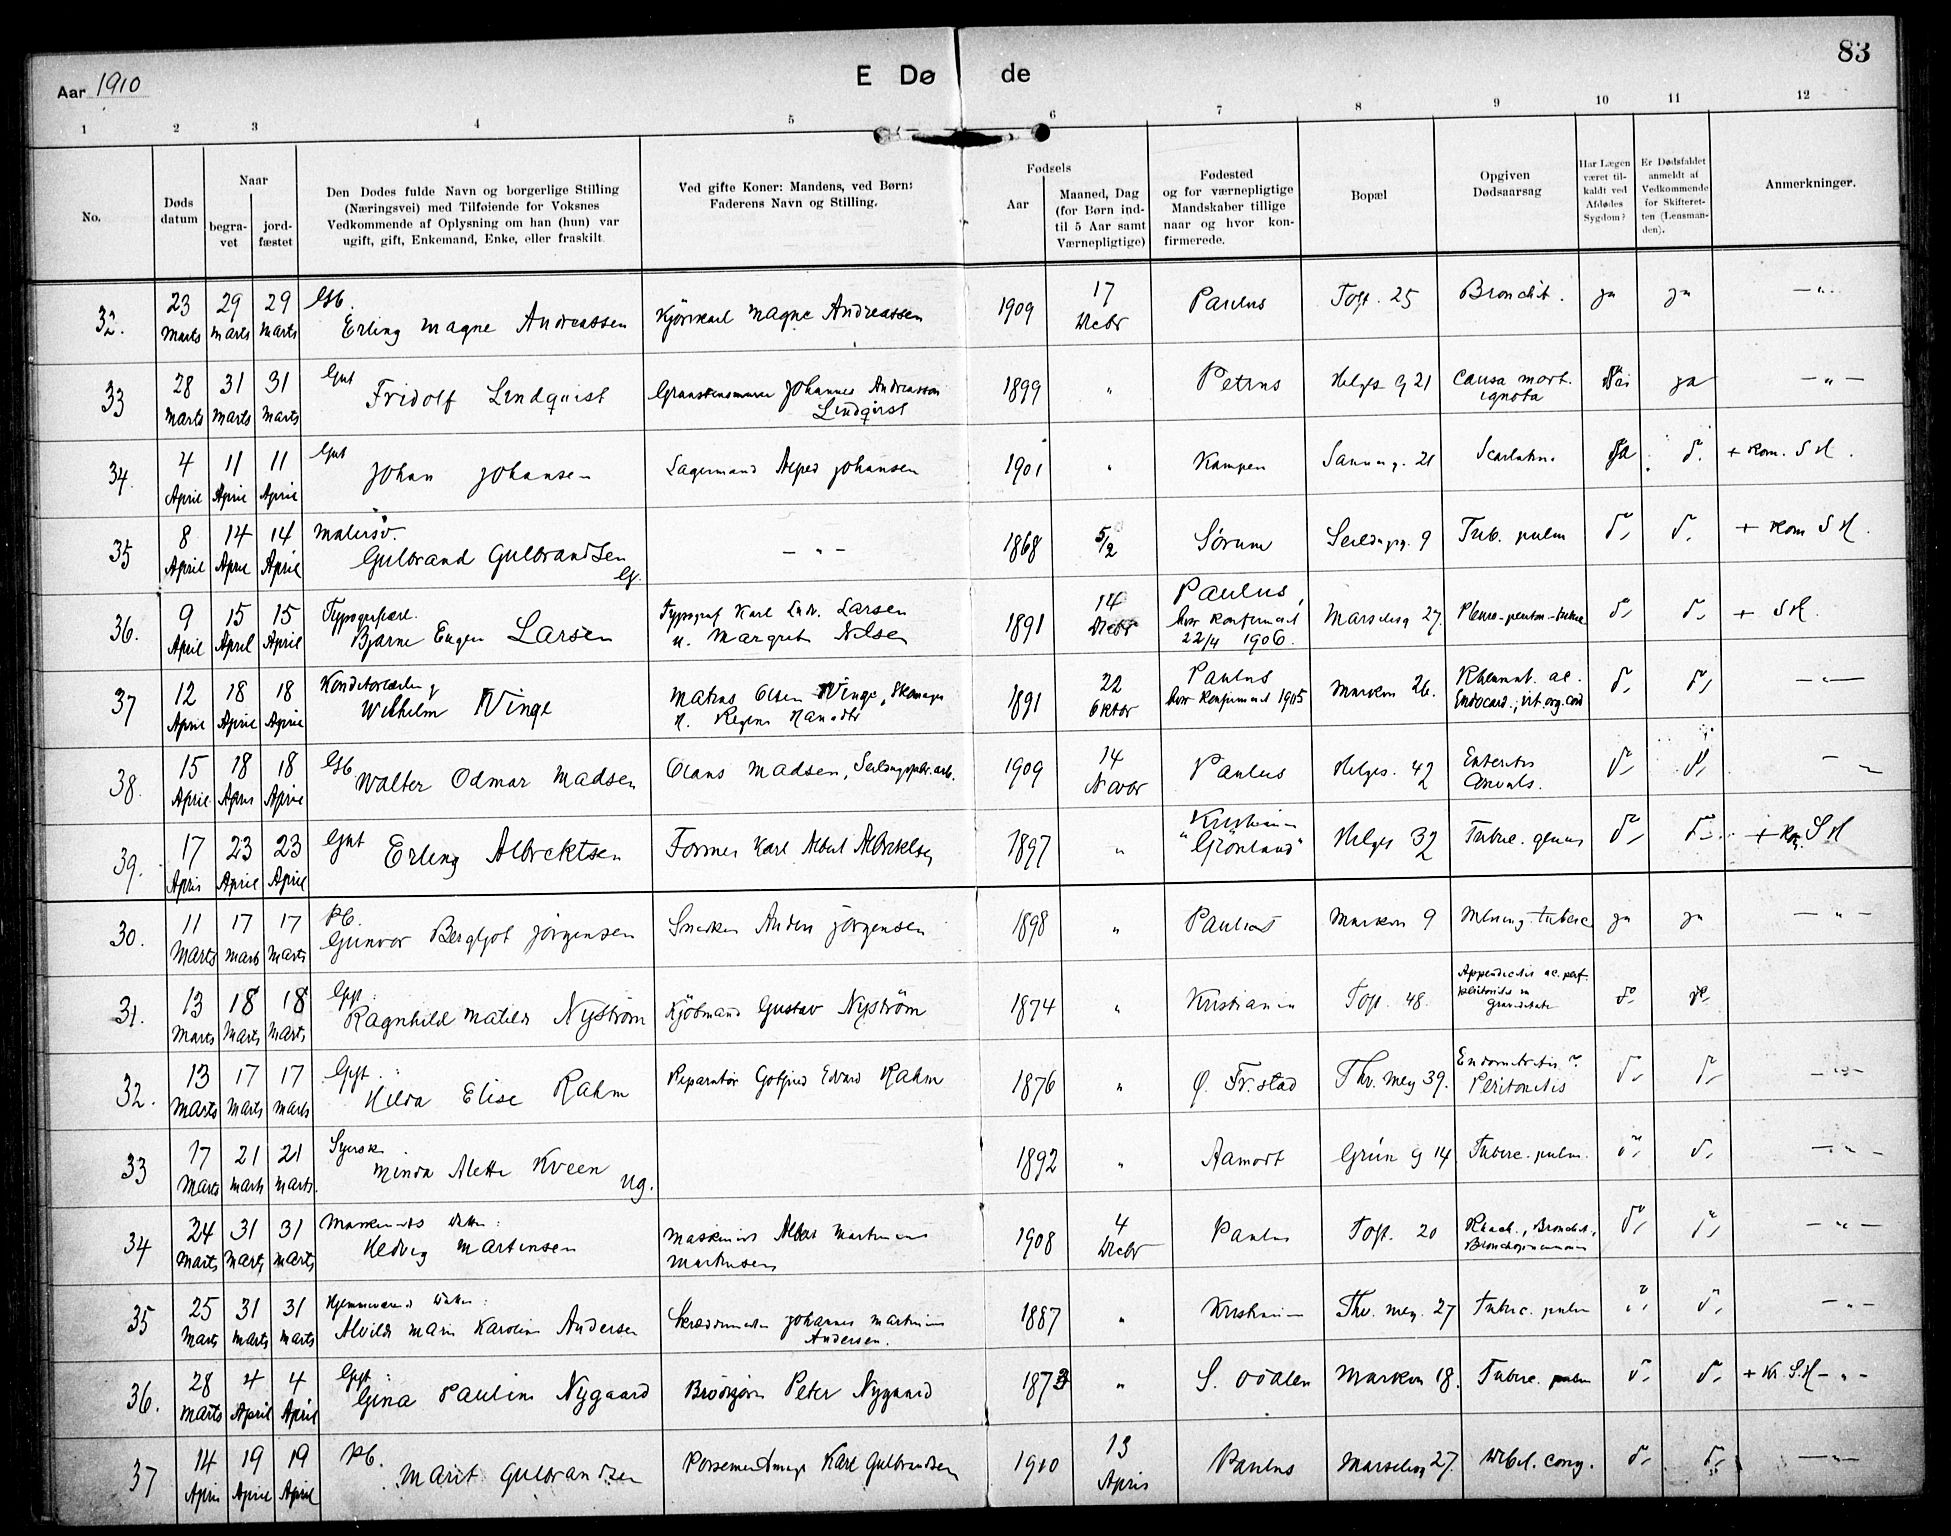 83
Aar 1910
E Dø de
1 2 3 4 5 6 7 8 9 10 11 12
No.
Døds datum
Naar
begra-vet
jord-fæstet
Den Dødes fulde Navn og borgerlige Stilling
(Næringsvei) med Tilføiende for Voksnes
Vedkommende af Oplysning om han (hun) var
ugift, gift, Enkemand, Enke, eller fraskilt.
Ved gifte Koner: Mandens, ved Børn:
Faderens Navn og Stilling.
Fødsels
Aar
Maaned, Dag
(for Børn ind-
til 5 Aar samt
Værnepligtige)
Fødested
og for værnepligtige
Mandskaber tillige
naar og hvor kon-
firmerede.
Bopæl
Opgiven
Dødsaarsag
Har Lægen
været til-
kaldt ved
Afdødes
Sygdom?
Er Dødsfaldet
anmeldt af
Vedkommende
for Skifteret-
ten (Lensman-
den).
Anmerkninger.
32. 23 Marts 29 Marts 29 Marts Gb. Erling Magne Andreassen Kjørekarl Magne Andreassen 1909 17 Decbr Paulus Toft. 25 Bronchit. ja ja — " —
33 28 Marts 31 Marts 31 Marts Gut Fridolf Lindqvist Johannes Andreasson Lindqvist 1899 " Petrus Helges g 21 Causa mort. ignota Nei ja — " —
34. 4 April 11 April 11 April Gut Johan Johansen Lagermand Johansen 1901 " Kampen 21 Scarlatina Ja d°. + Kom. S H.
35 8 April 14 April 14 April Malersv. Gulbrand Gulbrandsen G. — " — 1868 5/2 Sørum Seildugsg. 9 Tub. pulm d°. d°. + Kom S H.
36. 9 April 15 April 15 April Bjarne Eugen Larsen Typograf Karl Ludv. Larsen u. Margret Nilsen 1891 14 Decbr Paulus, hvor konfirmeret 22/4 1906. 27. d°. d°. + S H.
37 12 April 18 April 18 April Wilhelm Winge Olsen Winge, u. 1891 22 Oktbr Paulus hvor konfirmeret 1905 Markvn 26. Rheumat. ac. Endocard., vit. org. cord d°. d°. — " —
38. 15 April 18 April 18 April Gb Walter Odmar Madsen Olaus Madsen, 1909 14 Novbr Paulus Helges. 42 Enteritis Convuls. d°. d°. — " —
39. 17 April 23 April 23 April Gut Erling Albrektsen Former Karl Albert Albrektsen 1897 " Kristiania "Grönland" Helges 32 Tuberc. d°. d°. + Kom. S H
30. 11 Marts 17 Marts 17 Marts Pb. Gunvor Bergljot Jörgensen Snedker Anders Jörgensen 1898 " Paulus Markvn 9 Mening. tuberc ja ja — " —
31. 13 Marts 18 Marts 18 Marts Gift. Ragnhild Matilde Nyström Kjöbmand Gustav Nyström 1874 " Kristiania Toft. 48. Appendicitis ac. perf. Peritonitis Graviditate d°. d°.
32. 13 Marts 17 Marts 17 Marts Gift. Hilda Elise Rahm Reparatør Gotfried Edvard Rahm 1876 " Ø. Fr.stad Thv. mey 39. Endometritis? Peritonitis d°. d°. — " —
33 17 Marts 21 Marts 21 Marts Syersk Minda Alette Kveen ug. 1892 " Aamodt Grün g 14 Tuberc. pulm. d°. d°. — " —
34 24 Marts 31 Marts 31 Marts Maskinists datter: Hedvig Martinsen Maskinist Albert Martinius Martinsen 1908 4 Decbr Paulus Toft. 20 Rhach., Bronchit, Bronchopneumoni d°. d°. — " —
35 25 Marts 31 Marts 31 Marts Hjemmeværende datter: Alvilde Marie Karoline Andersen Skreddermester Johannes Martinius Andersen. 1887 " Kristiania Thv. mey. 27 Tuberc. pulm d°. d°. — " —
36. 28 Marts 4 April 4 April Gift: Gina Pauline Nygaard Peter Nygaard 1873 " S. Odalen Markvn 18. Tuberc. pulm d°. d°. + Kr. S.H — " —
37 14 April 19 April 19 April Pb. Marit Gulbrandsen Karl Gulbrandsen 1910 13 April Paulus 27. Debil. cong. d°. d°. — " —